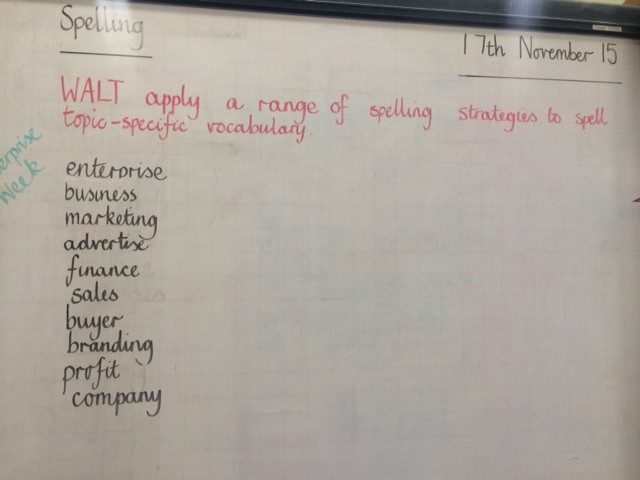 Spelling
17th November 15
WALT apply a range of spelling strategies to spell
topic-specific vocabulary.
Week
enterprise
business
marketing
advertise
finance
sales
buyer
branding
profit
company